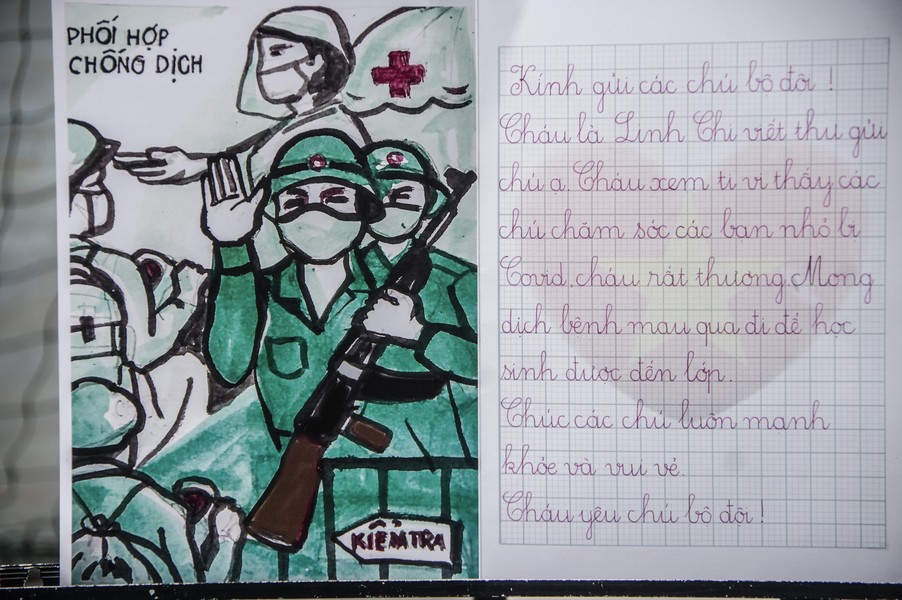 PHỐI HỢP
CHỐNG DỊCH
KIỂM TRA
Kính gửi các chú bộ đội !
Cháu là Linh Chi viết thư gửi
chú ạ. Cháu xem ti vi thấy các
chú chăm sóc các bạn nhỏ bị
Covid, cháu rất thương. Mong
dịch bệnh mau qua đi để học
sinh được đến lớp.
Chúc các chú luôn mạnh
khỏe và vui vẻ.
Cháu yêu chú bộ đội !